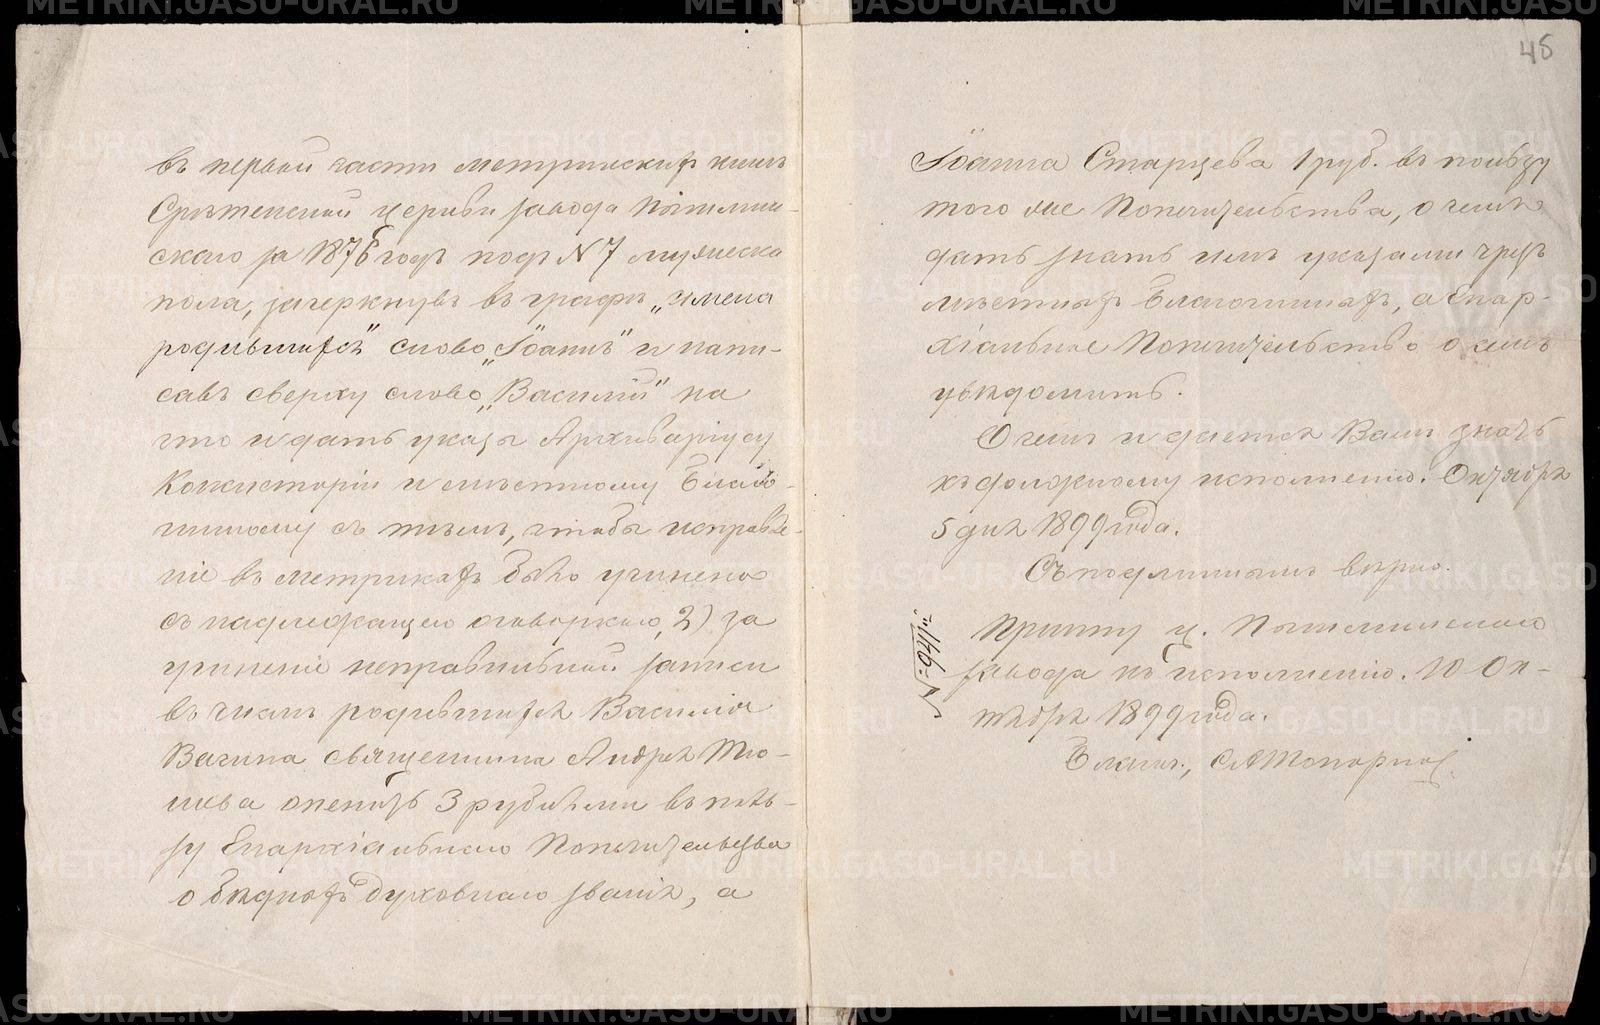 въ первой части метрическихъ книгъ
Срѣтенской церкви завода Пышмин-
скаго за 1876 годъ подъ N 7 мужеска
пола, зачеркнувъ въ графѣ „имена
родившихся" слово „Іоаннъ" и напи-
савъ сверху слово „Василій" на
что и дать указы Архиваріусу
Консисторіи и мѣстному Благо-
чинному съ тѣмъ, чтобы исправле-
ніе въ метрикахъ было учинено
съ надлежащею оговоркою, 2) за
учиненіе неправильной записи
въ числѣ родившихся Василія
Вагина священника Андрея
оштрафовать 3 рублями въ поль-
зу Епархіальнаго Попечительства
о бѣдныхъ духовнаго званія, а
48
Іоанна Старцева 1 руб. въ пользу
того же Попечительства, о чемъ
дать знать имъ указами чрезъ
мѣстныхъ Благочинныхъ, а Епар-
хіальное Попечительство о семъ
увѣдомить.
О чемъ и дается Вамъ знать
къ должному исполненію. Октября
5 дня 1899 года.
Съ подлиннымъ вѣрно.
Причту ц. Пышминскаго
завода къ исполненію. 10 Ок-
тября 1899 года.
Благоч., С А Топорков
N=941.
METRIKI.GASO-URAL.RU